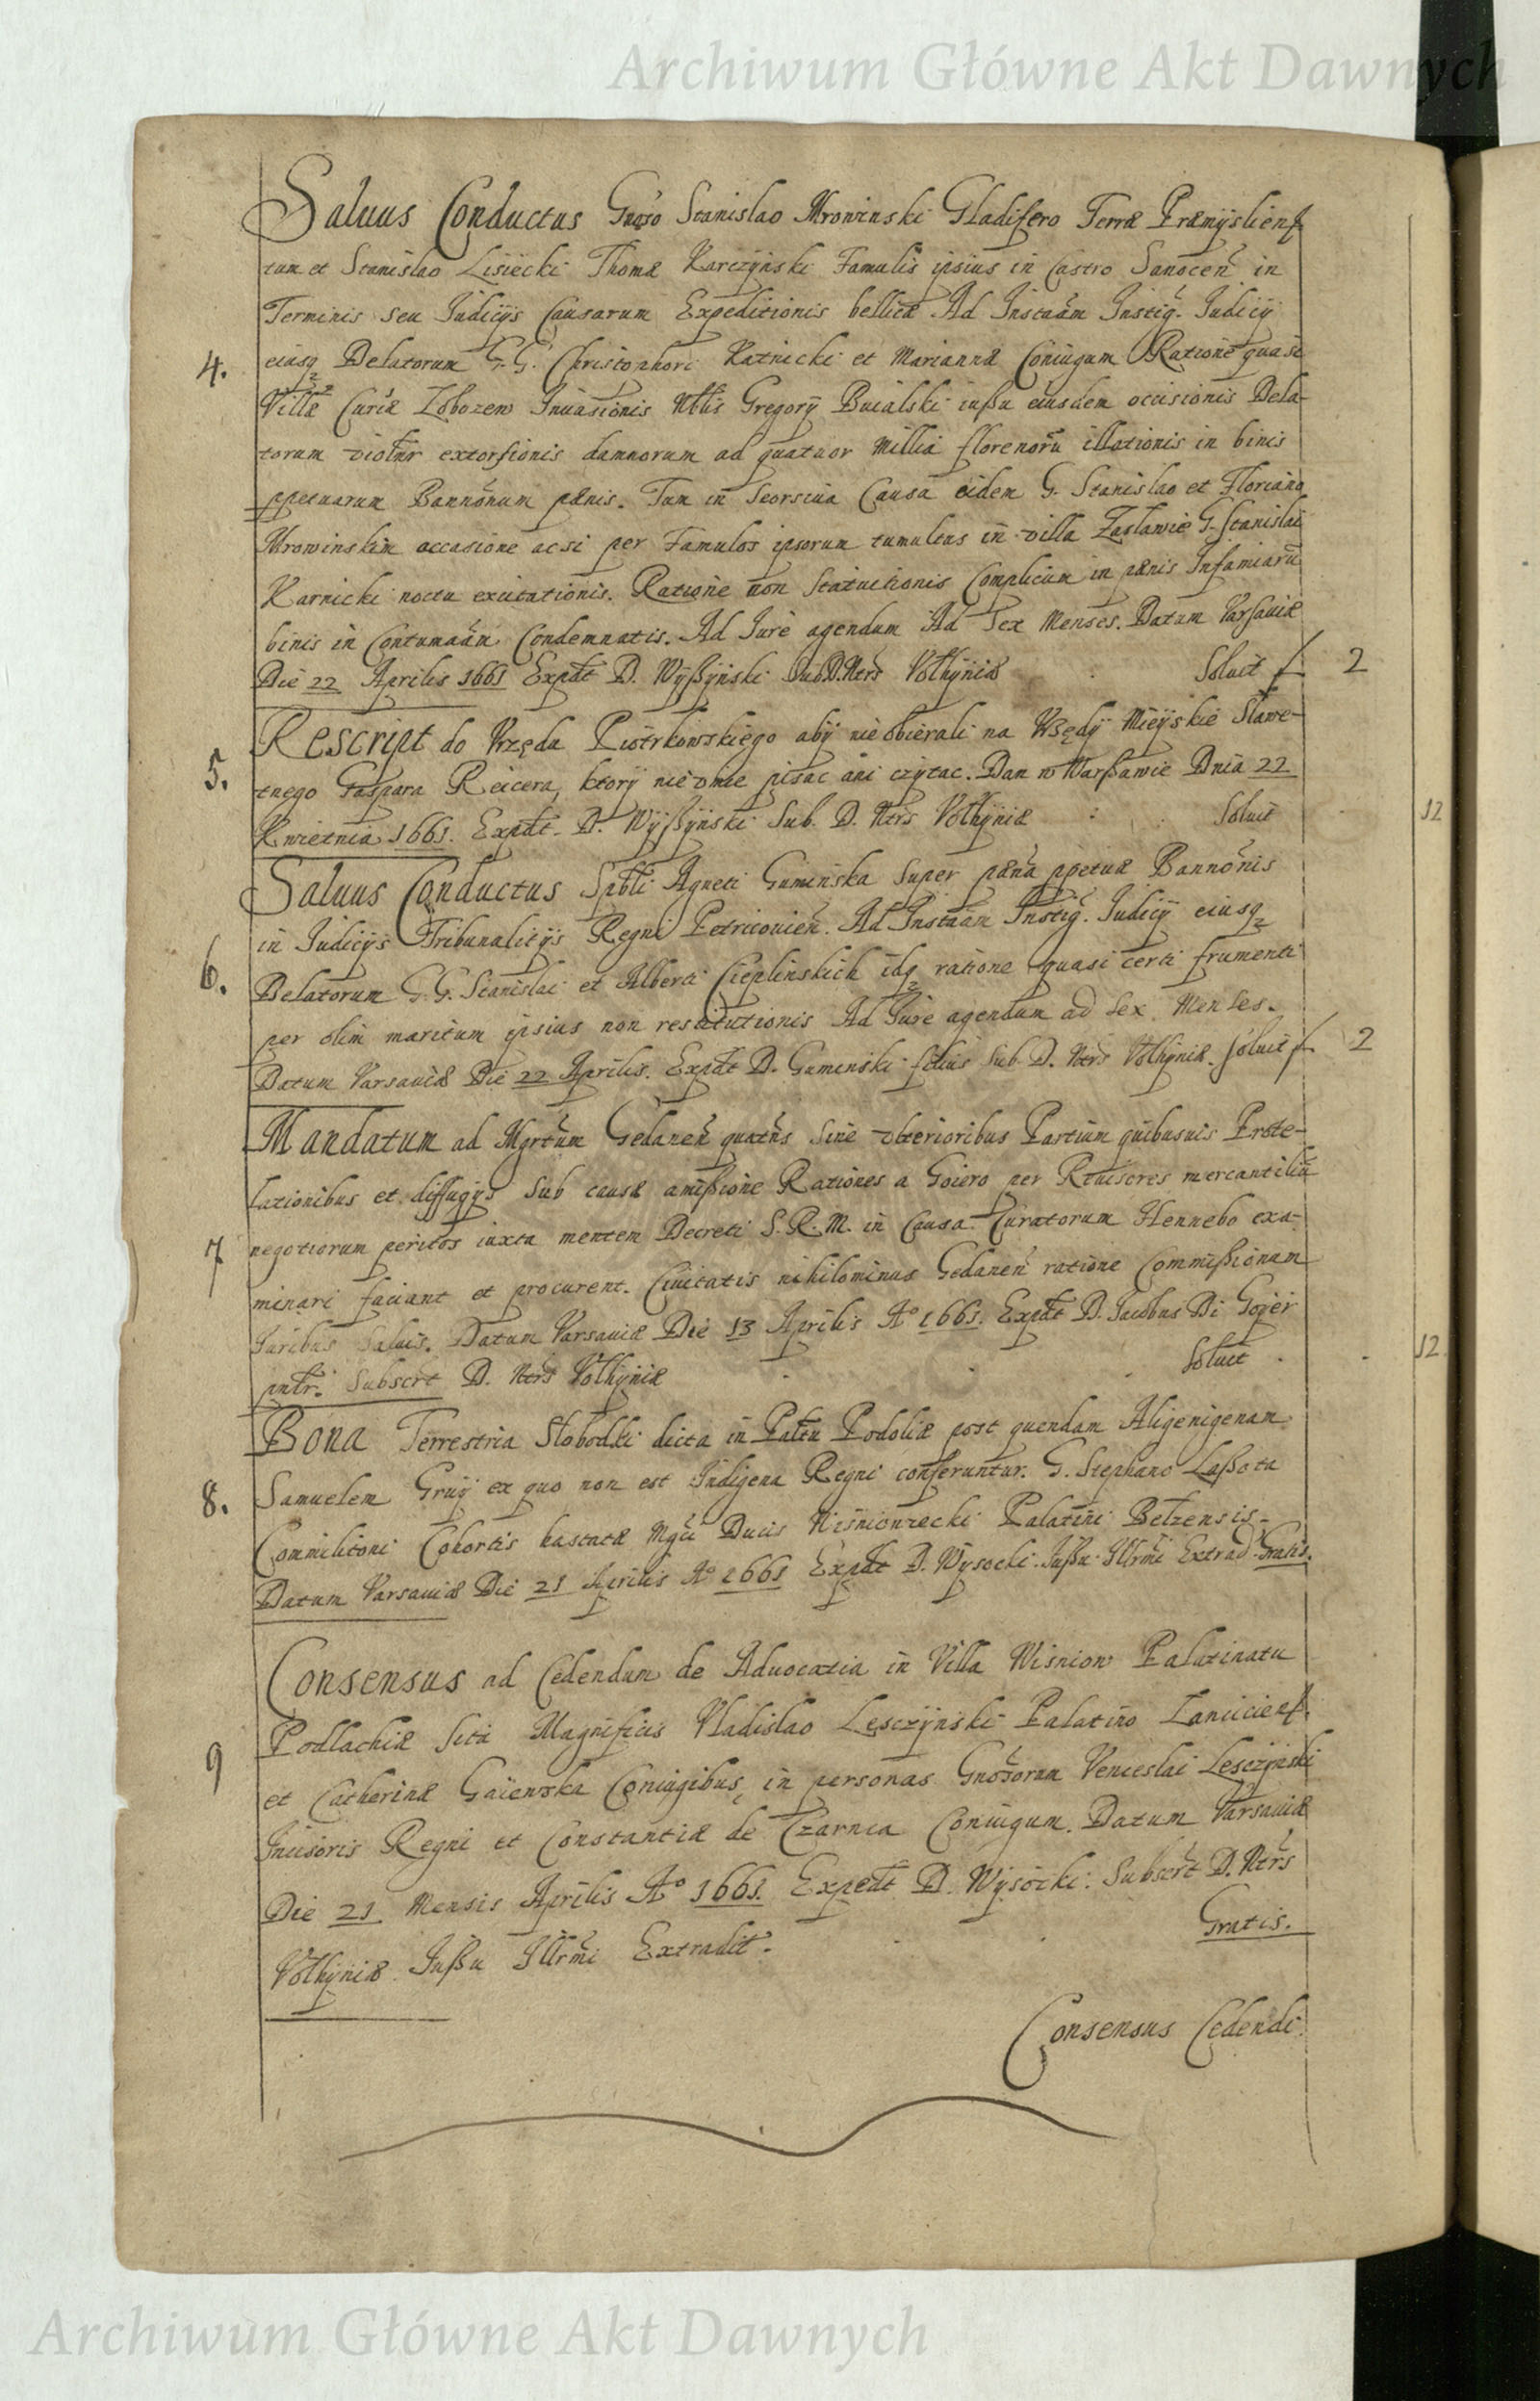 Archiwum Główne Akt Dawnych
Saluus Conductus Gnoso Stanislao Mrowinski Gladifero Terræ Præmysliens
tum et Stanislao Lisiecki Thomæ Karczynski Famulis ipsius in Castro Sanocen in
Terminis seu Judicys Causarum Expeditionis bellicæ Ad Instaām Instig. Judicij
4. eiusq Delatorum G. G. Christophori Katnicki et Mariannæ Coniugum Ratione quasi
Villæ Curiæ Zobozew Inuasionis Nblis Gregory Buialski iußu eiusdem occisionis Dela-
torum violtnr extorsionis damnorum ad quatuor Millia florenorū illationis in binis
ppetuarum Bannonum pænis. Tum in Seorsiua Causa eidem G. Stanislao et Floriano
Mrowinskim occasione acsi per Famulos ipsorum tumultus in villa Zaslawie G. Stanislai
Karnicki noctu excitationis. Ratione non Statuitionis Complicum in pænis Infamiarū
binis in Contumaām Condemnatis. Ad Jure agendum Ad Sex Menses. Datum Varsauiæ
Die 22 Aprilis 1661 Expdt D. Wyßynski Sub D. Ntrs Volhyniæ Soluit f 2
Rescript do Vrzędu Piotrkowskiego aby nieobierali na Vrzędy Mieyskie Sławe-
5. tnego Gaspara Reicera, ktory nie vmie pisac ani czytac. Dan w Warßawie Dnia 22
Kwietnia 1661. Expdt. D. Wyßynski Sub. D. Ntrs Volhyniæ Soluit 12
Saluus Conductus Spbli Agneti Guminska super pæna ppetuæ Bannonis
in Judicijs Tribunalitijs Regni Petricouien. Ad Instaām Instig. Judicij eiusq
6. Delatorum G. G. Stanislai et Alberti Cieplinskich idq ratione quasi certi frumenti
per olim maritum ipsius non restitutionis Ad Jure agendum ad sex Menses.
Datum Varsauiæ Die 22 Aprilis. Expdt D. Guminski filius Sub. D. Ntrs Volhyniæ. Soluit f 2
Mandatum ad Mgrtum Gedanen quatns sine vlterioribus Partium quibusuis Prote-
lationibus et diffugijs sub causæ amißione Rationes a Goiero per Reuisores mercantiliū
7 negotiorum peritos iuxta mentem Decreti S. R. M. in Causa Curatorum Hennebo exa-
minari faciant et procurent. Ciuitatis nihilominus Gedanen ratione Commißionum
Juribus saluis. Datum Varsauiæ Die 13 Aprilis Aº 1661. Expdt D. Jacobus Di Gojer
pntr. Subscrt D. Ntrs Volhyniæ Soluit 12
Bona Terrestria Slobodki dicta in Paltu Podoliæ post quendam Aligenigenam
8. Samuelem Gruy ex quo non est Indigena Regni conferuntur. G. Stephano Laßota
Commilitoni Cohortis hastatæ Mgci Ducis Wisniowiecki Palatini Belzensis.
Datum Varsauiæ Die 21 Aprilis Aº 1661 Expdt D. Wysocki. Jußu Illrmi Extrad. Gratis.
Consensus ad Cedendum de Aduocatia in Villa Wisniow Palatinatu
Podlachiæ sita Magnificis Vladislao Lesczynski Palatino Lanciciens.
9 et Catherinæ Gaiewska Coniugibus, in personas Gnosorum Venceslai Lesczynski
Incisoris Regni et Constantiæ de Czarnca Coniugum. Datum Varsauiæ
Die 21 Mensis Aprilis Aº 1661. Expedt D. Wysocki. Subscrt D. Ntrs
Volhyniæ. Jußu Illrmi Extradit. Gratis.
Consensus Cedendi
Archiwum Główne Akt Dawnych